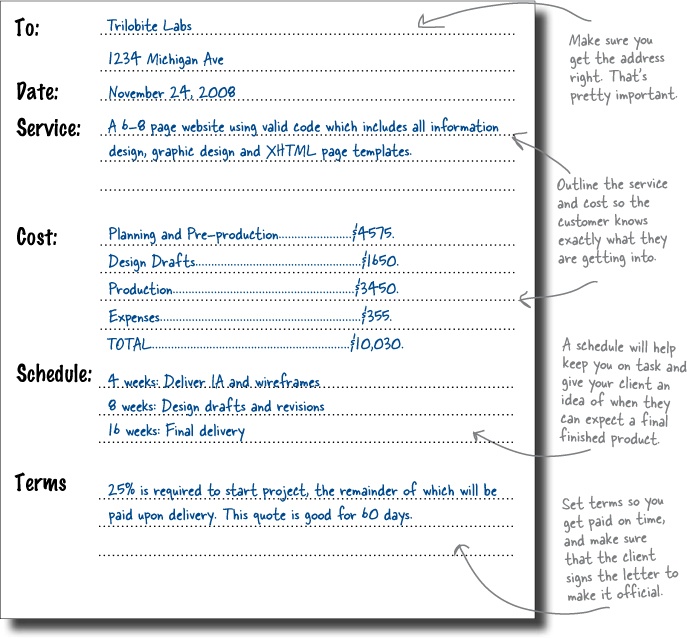 To: Trilobite Labs
1234 Michigan Ave
Date: November 24, 2008
Service: A 6-8 page website using valid code which includes all information
design, graphic design and XHTML page templates.
Cost: Planning and Pre-production......................$4575.
Design Drafts..................................................$1650.
Production.......................................................$3450.
Expenses..........................................................$355.
TOTAL.............................................................$10,030.
Schedule: 4 weeks: Deliver IA and wireframes
8 weeks: Design drafts and revisions
16 weeks: Final delivery
Terms 25% is required to start project, the remainder of which will be
paid upon delivery. This quote is good for 60 days.
Make sure you
get the address
right. That's
pretty important.
Outline the service
and cost so the
customer knows
exactly what they
are getting into.
A schedule will help
keep you on task and
give your client an
idea of when they
can expect a final
finished product.
Set terms so you
get paid on time,
and make sure
that the client
signs the letter to
make it official.